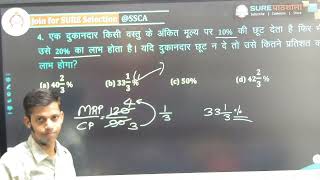 Join for SURE Selection @SSCA
SURE पाठशाला
4. एक दुकानदार किसी वस्तु के अंकित मूल्य पर 10% की छूट देता है फिर भी
उसे 20% का लाभ होता है। यदि दुकानदार छूट न दे तो उसे कितने प्रतिशत का
लाभ होगा?
(a) 40 2/3 % (b) 33 1/3 % (c) 30 % (d) 42 2/3 %
MRP/CP = 120/90 4/3 1/3 33 1/3 %